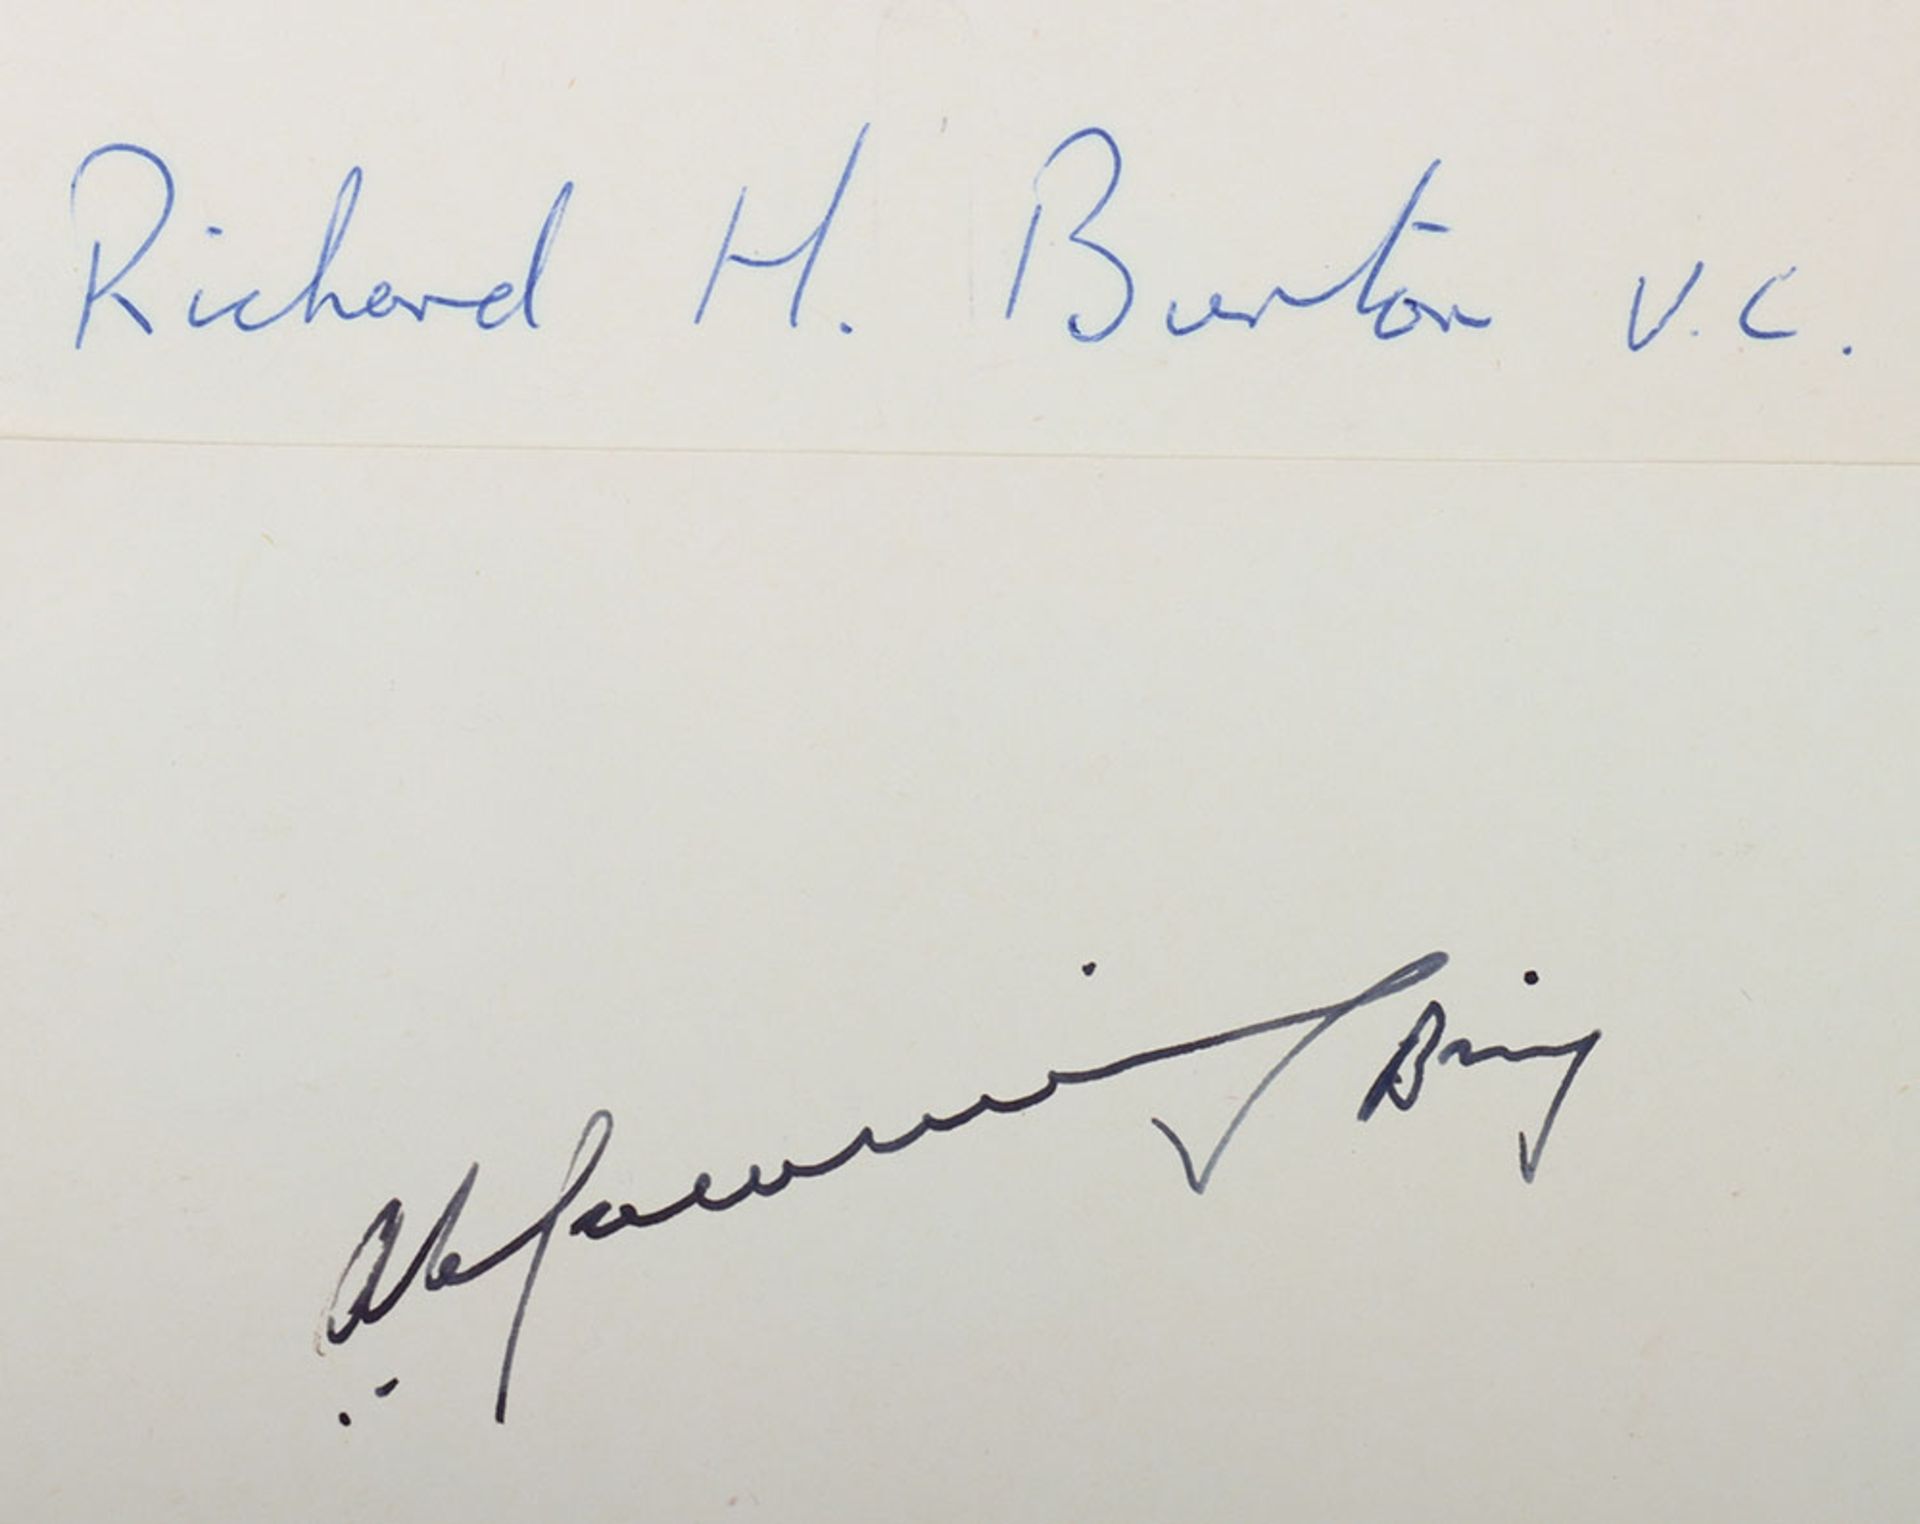 Richard H. Burton V.C.
Brig